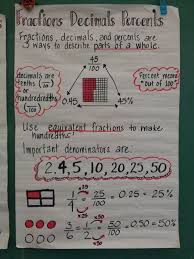 Fractions Decimals Percents
Fractions, decimals, and percents are
3 ways to describe parts of a whole.
45
100
decimals are
tenths (10)
or
hundredths
(100)
0.45
45%
Percent means
"out of 100"
Use equivalent fractions to make
hundredths!
Important denominators are...
2, 4, 5, 10, 20, 25, 50
×25
1/4 = 25/100 = 0.25 = 25%
×25
÷3 ×50
3/6 = 1/2 = 50/100 = 0.50 = 50%
÷3 ×50